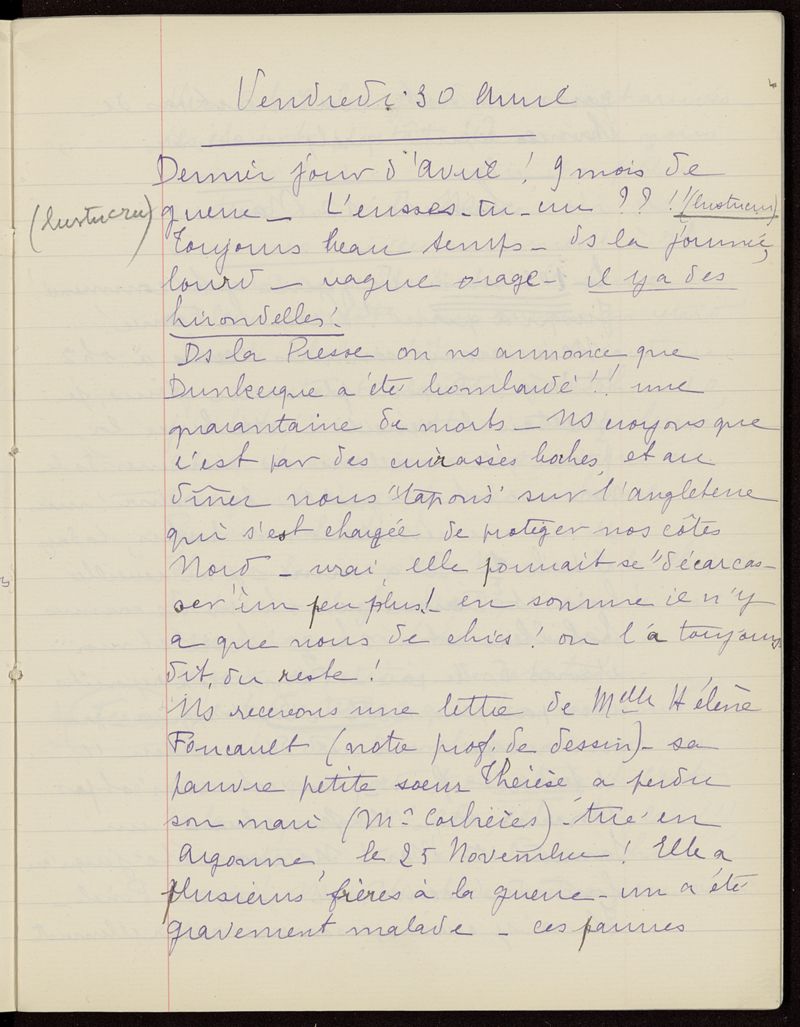 Vendredi 30 Avril
Dernier jour d'Avril ! 9 mois de
(lustucru) guerre _ L'eusses-tu-cru ?? !! (lustucru)
Toujours beau temps _ ds la journée,
lourd _ vague orage _ il y a des
hirondelles !
Ds la Presse on ns annonce que
Dunkerque a été bombardé !! une
quarantaine de morts _ Ns croyons que
c'est par des cuirassés boches, et au
dîner nous "tapons" sur l'Angleterre
qui s'est chargée de protéger nos côtes
Nord _ vrai, elle pourrait se "décarcas-
ser" un peu plus ! en somme il n'y
a que nous de chics ! on l'a toujours
dit, du reste !
Ns recevons une lettre de Melle Hélène
Foucault (notre prof. de dessin) _ sa
pauvre petite soeur Thérèse a perdu
son mari (Mr Corbières) _ tué en
Argonne, le 25 Novembre ! Elle a
plusieurs frères à la guerre _ un a été
gravement malade _ ces pauvres